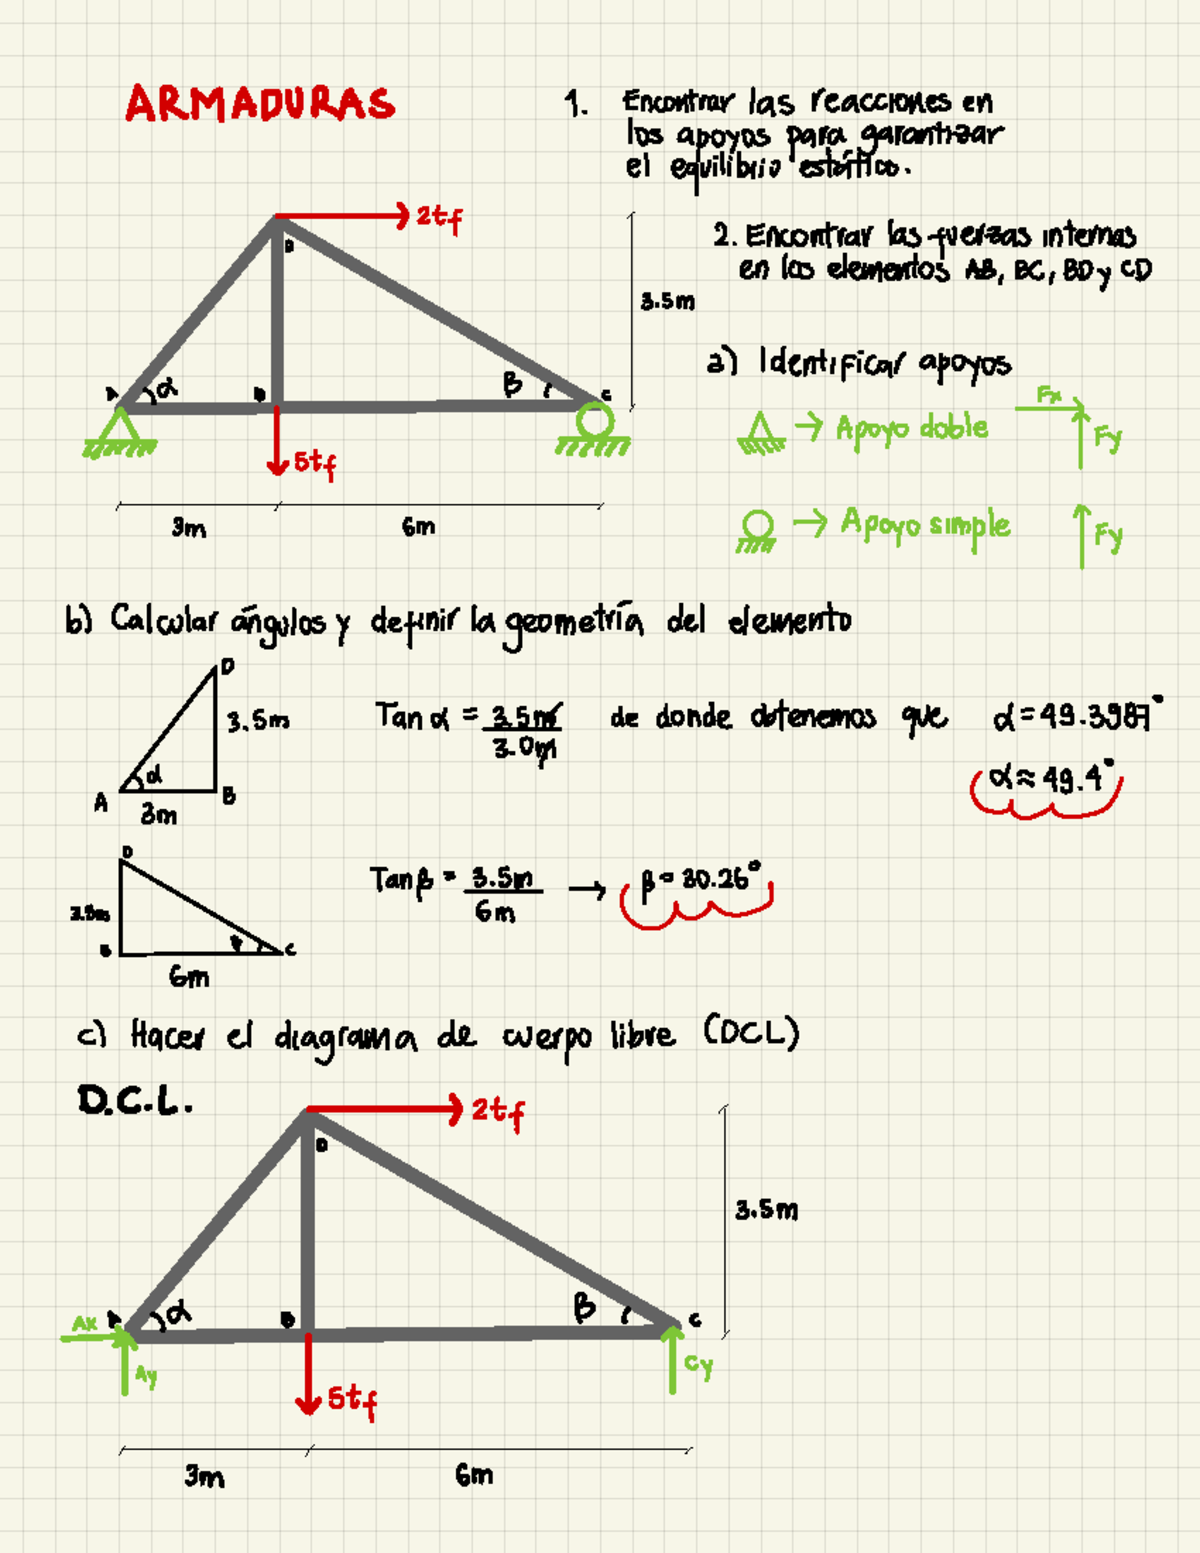 ARMADURAS
1. Encontrar las reacciones en
los apoyos para garantizar
el equilibrio estático.
2tf
D
2. Encontrar las fuerzas internas
en los elementos AB, BC, BD y CD
3.5m
a) Identificar apoyos
A α B β C
Fx
→ Apoyo doble Fy
5tf
3m 6m
→ Apoyo simple Fy
b) Calcular ángulos y definir la geometría del elemento
D
3.5m
Tan α = 3.5m / 3.0m de donde obtenemos que α = 49.3987°
α
A B
3m
α ≈ 49.4°
D
3.5m
Tan β = 3.5m / 6m → β = 30.26°
B β C
6m
c) Hacer el diagrama de cuerpo libre (DCL)
D.C.L.
2tf
D
3.5m
Ax A α B β C
Ay Cy
5tf
3m 6m